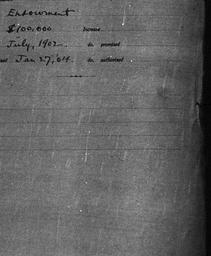 Endowment
$100,000 Increase
July, 1902. do. promised
Jan 27, 04. do. authorized